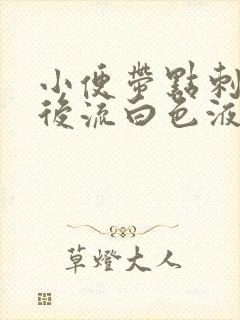 小便帶點刺
後流白色液
草燈大人